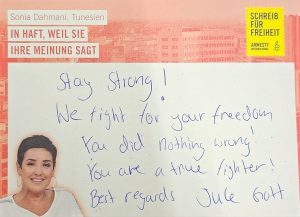 Sonia Dahmani, Tunesien
IN HAFT, WEIL SIE
IHRE MEINUNG SAGT
SCHREIB
FÜR
FREIHEIT
AMNESTY
INTERNATIONAL
Stay Strong!
We fight for your freedom
You did nothing wrong!
You are a true fighter!
Best regards Jule Gott